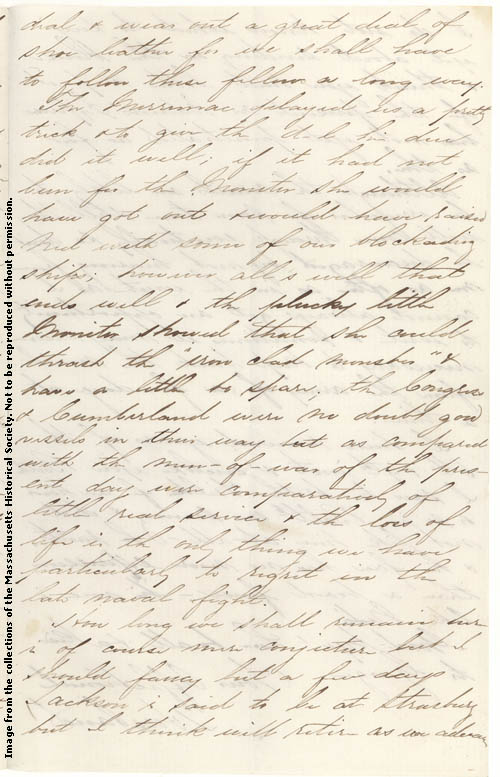 deal & wear out a great deal of
shoe leather for we shall have
to follow these fellows a long way.
The Merrimac played us a pretty
trick & to give the d--l his due
did it well; if it had not
been for the Monitor she would
have got out & would have raised
Ned with some of our blockading
ships; however all's well that
ends well & the plucky little
Monitor showed that she could
thrash the "iron clad monster" &
have a little to spare. The Congress
& Cumberland were no doubt good
vessels in their way but as compared
with the men-of-war of the pres-
ent day were comparatively of
little real service & the loss of
life is the only thing we have
particularly to regret in the
late naval fight.
How long we shall remain here
is of course mere conjecture but I
should fancy but a few days.
Jackson is said to be at Strasburg
but I think will retire as we advance
Image from the collections of the Massachusetts Historical Society. Not to be reproduced without permission.